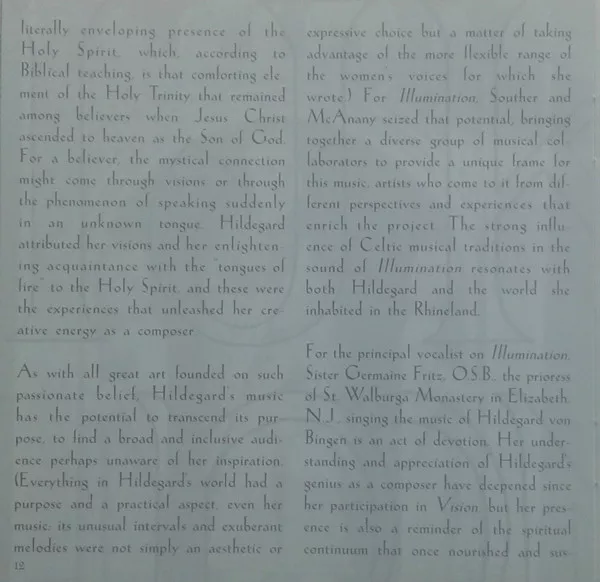 literally enveloping presence of the
Holy Spirit, which, according to
Biblical teaching, is that comforting ele-
ment of the Holy Trinity that remained
among believers when Jesus Christ
ascended to heaven as the Son of God.
For a believer, the mystical connection
might come through visions or through
the phenomenon of speaking suddenly
in an unknown tongue. Hildegard
attributed her visions and her enlighten-
ing acquaintance with the "tongues of
fire" to the Holy Spirit, and these were
the experiences that unleashed her cre-
ative energy as a composer.
As with all great art founded on such
passionate belief, Hildegard's music
has the potential to transcend its pur-
pose, to find a broad and inclusive audi-
ence perhaps unaware of her inspiration.
(Everything in Hildegard's world had a
purpose and a practical aspect, even her
music; its unusual intervals and exuberant
melodies were not simply an aesthetic or
12
expressive choice but a matter of taking
advantage of the more flexible range of
the women's voices for which she
wrote.) For Illumination, Souther and
McAnany seized that potential, bringing
together a diverse group of musical col-
laborators to provide a unique frame for
this music, artists who come to it from dif-
ferent perspectives and experiences that
enrich the project. The strong influ-
ence of Celtic musical traditions in the
sound of Illumination resonates with
both Hildegard and the world she
inhabited in the Rhineland.
For the principal vocalist on Illumination,
Sister Germaine Fritz, O.S.B., the prioress
of St. Walburga Monastery in Elizabeth,
N.J., singing the music of Hildegard von
Bingen is an act of devotion. Her under-
standing and appreciation of Hildegard's
genius as a composer have deepened since
her participation in Vision, but her pres-
ence is also a reminder of the spiritual
continuum that once nourished and sus-